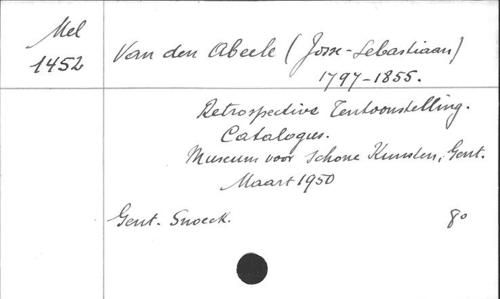 Mel
1452
Van den Abeele (Josse-Sebastiaan)
1797-1855.
Retrospective Tentoonstelling.
Catalogus.
Museum voor Schone Kunsten, Gent.
Maart 1950
Gent. Snoeck. 8o